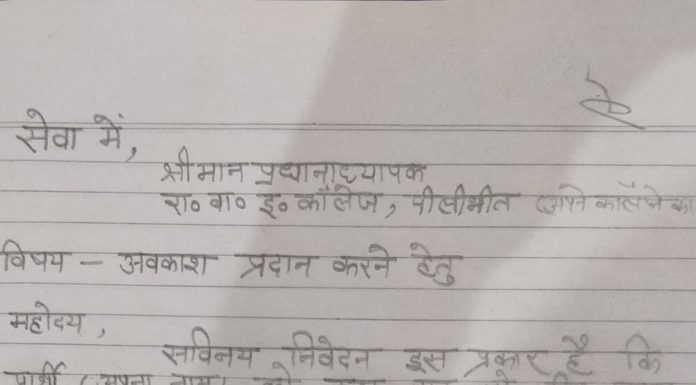 सेवा में,
श्रीमान प्रधानाध्यापक
रा० बा० इ० कॉलेज, पीलीभीत (अपने कॉलेज का
विषय - अवकाश प्रदान करने हेतु
महोदय,
सविनय निवेदन इस प्रकार है कि
प्रार्थी (अपना नाम)